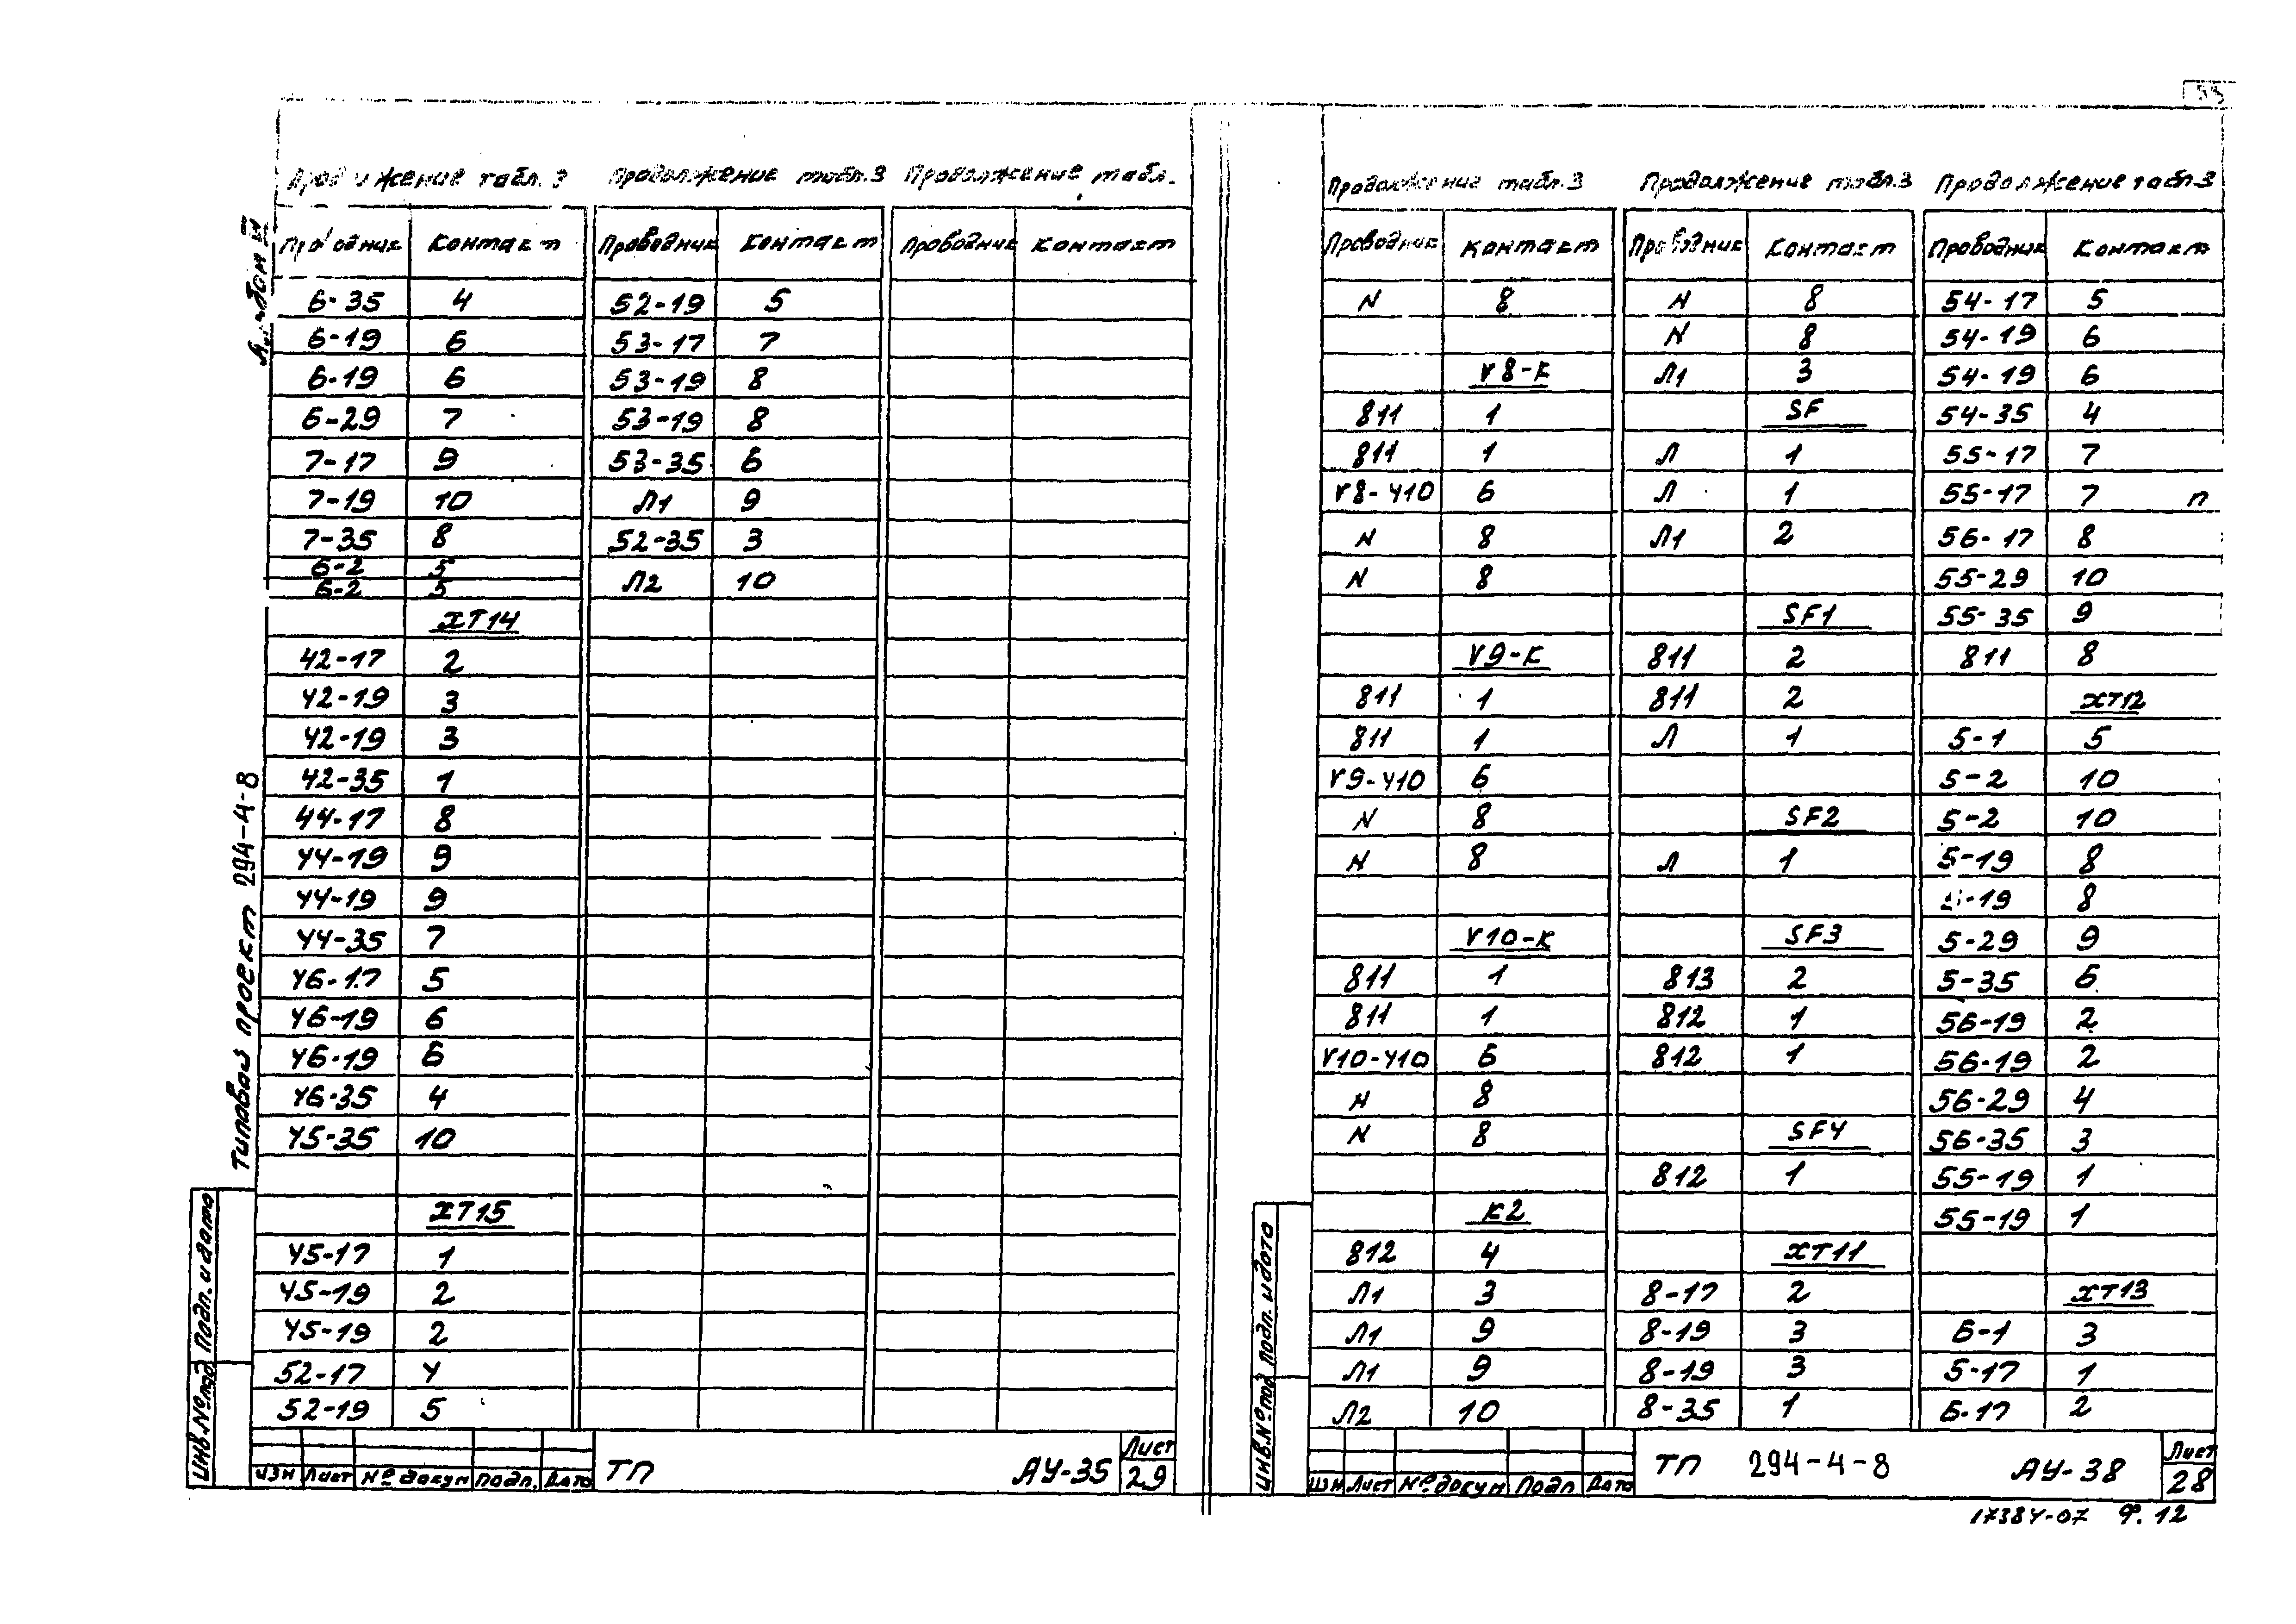 53
Продолжение табл. 3 Продолжение табл.3 Продолжение табл.
Проводник Контакт Проводник Контакт Проводник Контакт
6-35 4 52-19 5
6-19 6 53-17 7
6-19 6 53-19 8
6-29 7 53-19 8
7-17 9 53-35 6
7-19 10 Л1 9
7-35 8 52-35 3
6-2 5 Л2 10
6-2 5
ХТ14
42-17 2
42-19 3
42-19 3
42-35 1
44-17 8
44-19 9
44-19 9
44-35 7
46-17 5
46-19 6
46-19 6
46-35 4
45-35 10
ХТ15
45-17 1
45-19 2
45-19 2
52-17 4
52-19 5
Типовой проект 294-4-8
Подп. и дата
Инв.№под
Изм Лист № докум Подп. Дата
ТП АУ-35 Лист 29
Продолжение табл.3 Продолжение табл.3 Продолжение табл.3
Проводник Контакт Проводник Контакт Проводник Контакт
N 8 N 8 54-17 5
N 8 54-19 6
V8-К Л1 3 54-19 6
811 1 SF 54-35 4
811 1 Л 1 55-17 7
V8-410 6 Л 1 55-17 7 п
N 8 Л1 2 56-17 8
N 8 55-29 10
SF1 55-35 9
V9-К 811 2 811 8
811 1 811 2 ХТ12
811 1 Л 1 5-1 5
V9-410 6 5-2 10
N 8 SF2 5-2 10
N 8 Л 1 5-19 8
-19 8
V10-К SF3 5-29 9
811 1 813 2 5-35 6
811 1 812 1 56-19 2
V10-410 6 812 1 56-19 2
N 8 56-29 4
N 8 SF4 56-35 3
812 1 55-19 1
К2 55-19 1
812 4 ХТ11
Л1 3 8-17 2 ХТ13
Л1 9 8-19 3 6-1 3
Л1 9 8-19 3 5-17 1
Л2 10 8-35 1 6-17 2
Подп. и дата
Инв.№под
Изм Лист № докум Подп Дата
ТП 294-4-8 АУ-38 Лист 28
17384-07 Ф. 12